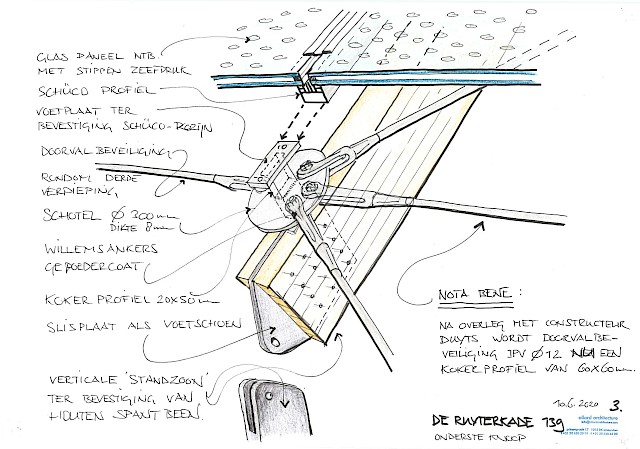 GLAS PANEEL NTB.
MET STIPPEN ZEEFDRUK
SCHÜCO PROFIEL
VOETPLAAT TER
BEVESTIGING SCHÜCO-KOZIJN
DOORVALBEVEILIGING
RONDOM DERDE
VERDIEPING
SCHOTEL Ø 300mm
DIKTE 8mm
WILLEMSANKERS
GEPOEDERCOAT
KOKER PROFIEL 20x50mm
SLISPLAAT ALS VOETSCHOEN
VERTICALE 'STANDZOON'
TER BEVESTIGING VAN
HOUTEN SPANTBEEN.
NOTA BENE:
NA OVERLEG MET CONSTRUCTEUR
DUYTS WORDT DOORVALBE-
VEILIGING IPV Ø12 NU EEN
KOKERPROFIEL VAN 60x60mm.
10.6.2020 3.
DE RUYTERKADE 139
ONDERSTE KNOOP